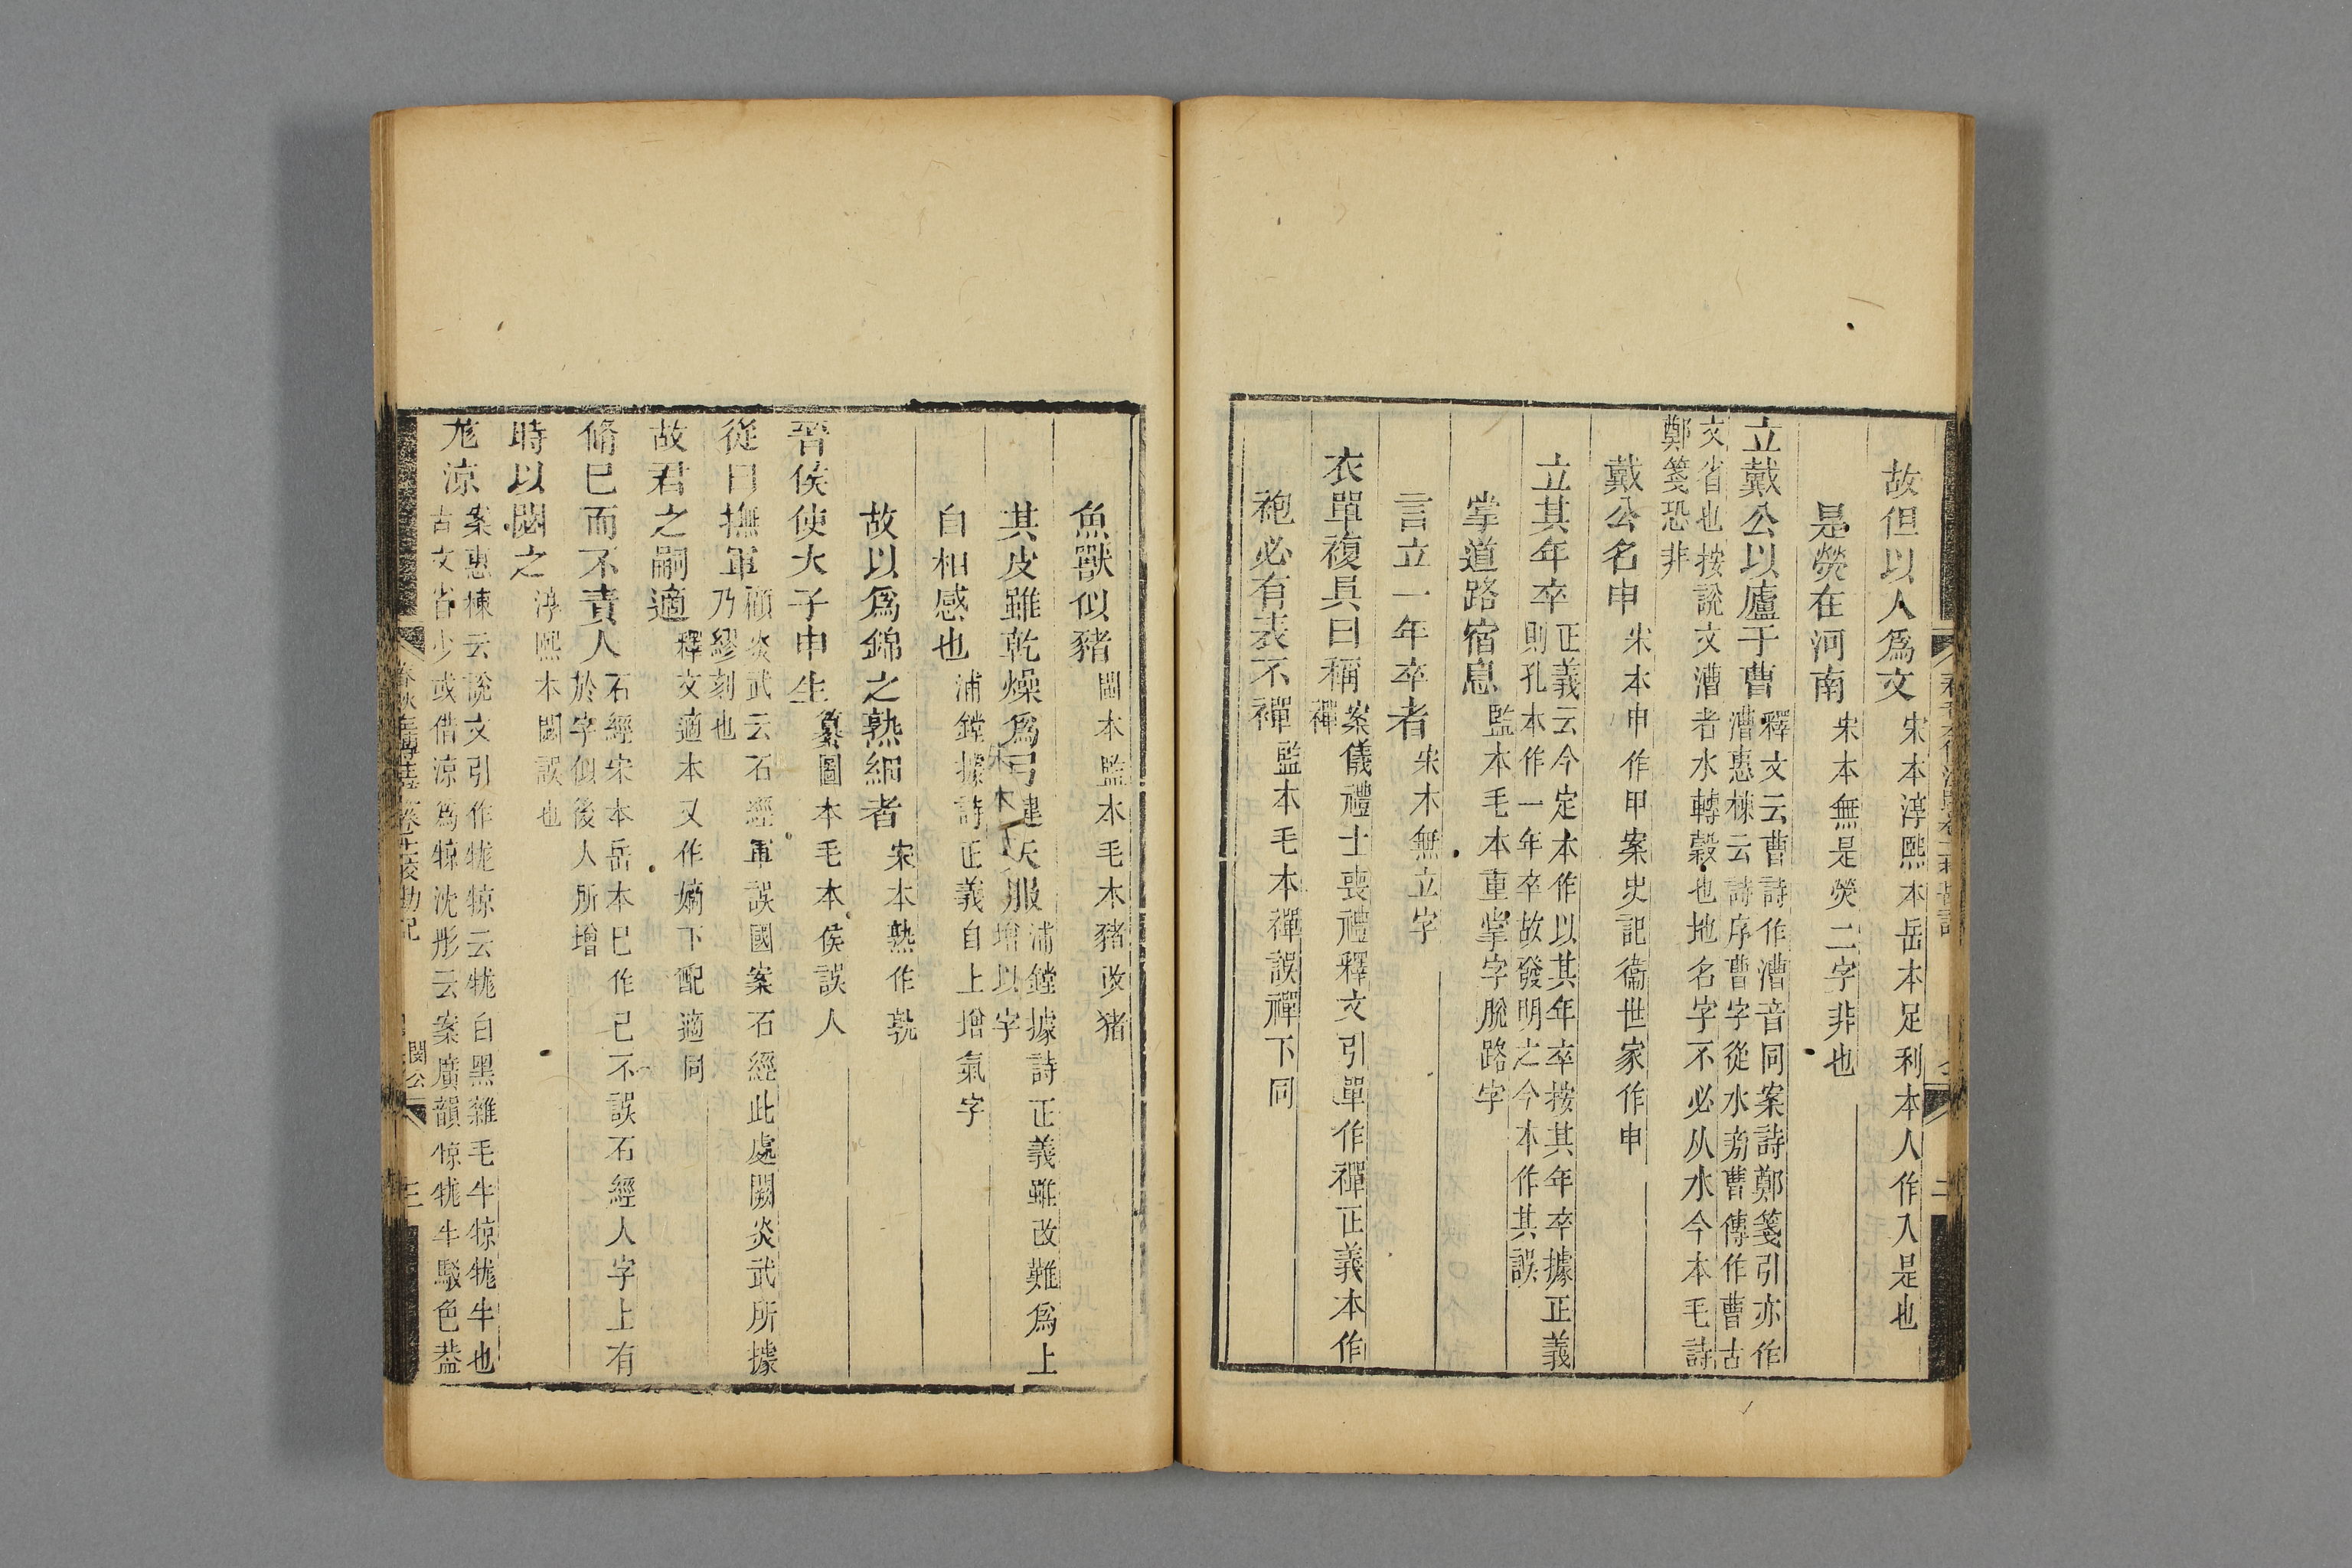 故但以人爲文 宋本淳熙本岳本足利本人作入是也
是熒在河南 宋本無是熒二字非也
立戴公以廬于曹 釋文云曹詩作漕音同案詩鄭箋引亦作
漕惠棟云詩序曹字從水旁曹傳作曹古
文省也按說文漕者水轉穀也地名字不必从水今本毛詩
鄭箋恐非
戴公名申 宋本申作甲案史記衞世家作申
立其年卒 正義云今定本作以其年卒按其年卒據正義
則孔本作一年卒故發明之今本作其誤
掌道路宿息 監本毛本重掌字脫路字
言立一年卒者 宋本無立字
衣單複具曰稱 案儀禮士喪禮釋文引單作禪正義本作
禪
袍必有表不襌 監本毛本襌誤禪下同
魚獸似豬 閩本監本毛本豬改猪
其皮雖乾燥爲弓鞬矢服 浦鏜據詩正義雖改難爲上
增以字
自相感也 浦鏜據詩正義自上增氣字
故以爲錦之熟細者 宋本熟作孰
晉侯使大子申生 纂圖本毛本侯誤人
從曰撫軍 顧炎武云石經軍誤國案石經此處闕炎武所據
乃繆刻也
故君之嗣適 釋文適本又作嫡下配適同
脩已而不責人 石經宋本岳本已作己不誤石經人字上有
於字似後人所增
時以閟之 淳熙本閟誤也
尨涼 案惠棟云說文引作牻㹁云牻白黑雜毛牛㹁牻牛也
古文省少或借涼爲㹁沈彤云案廣韻㹁牻牛駁色蓋
閔公
三